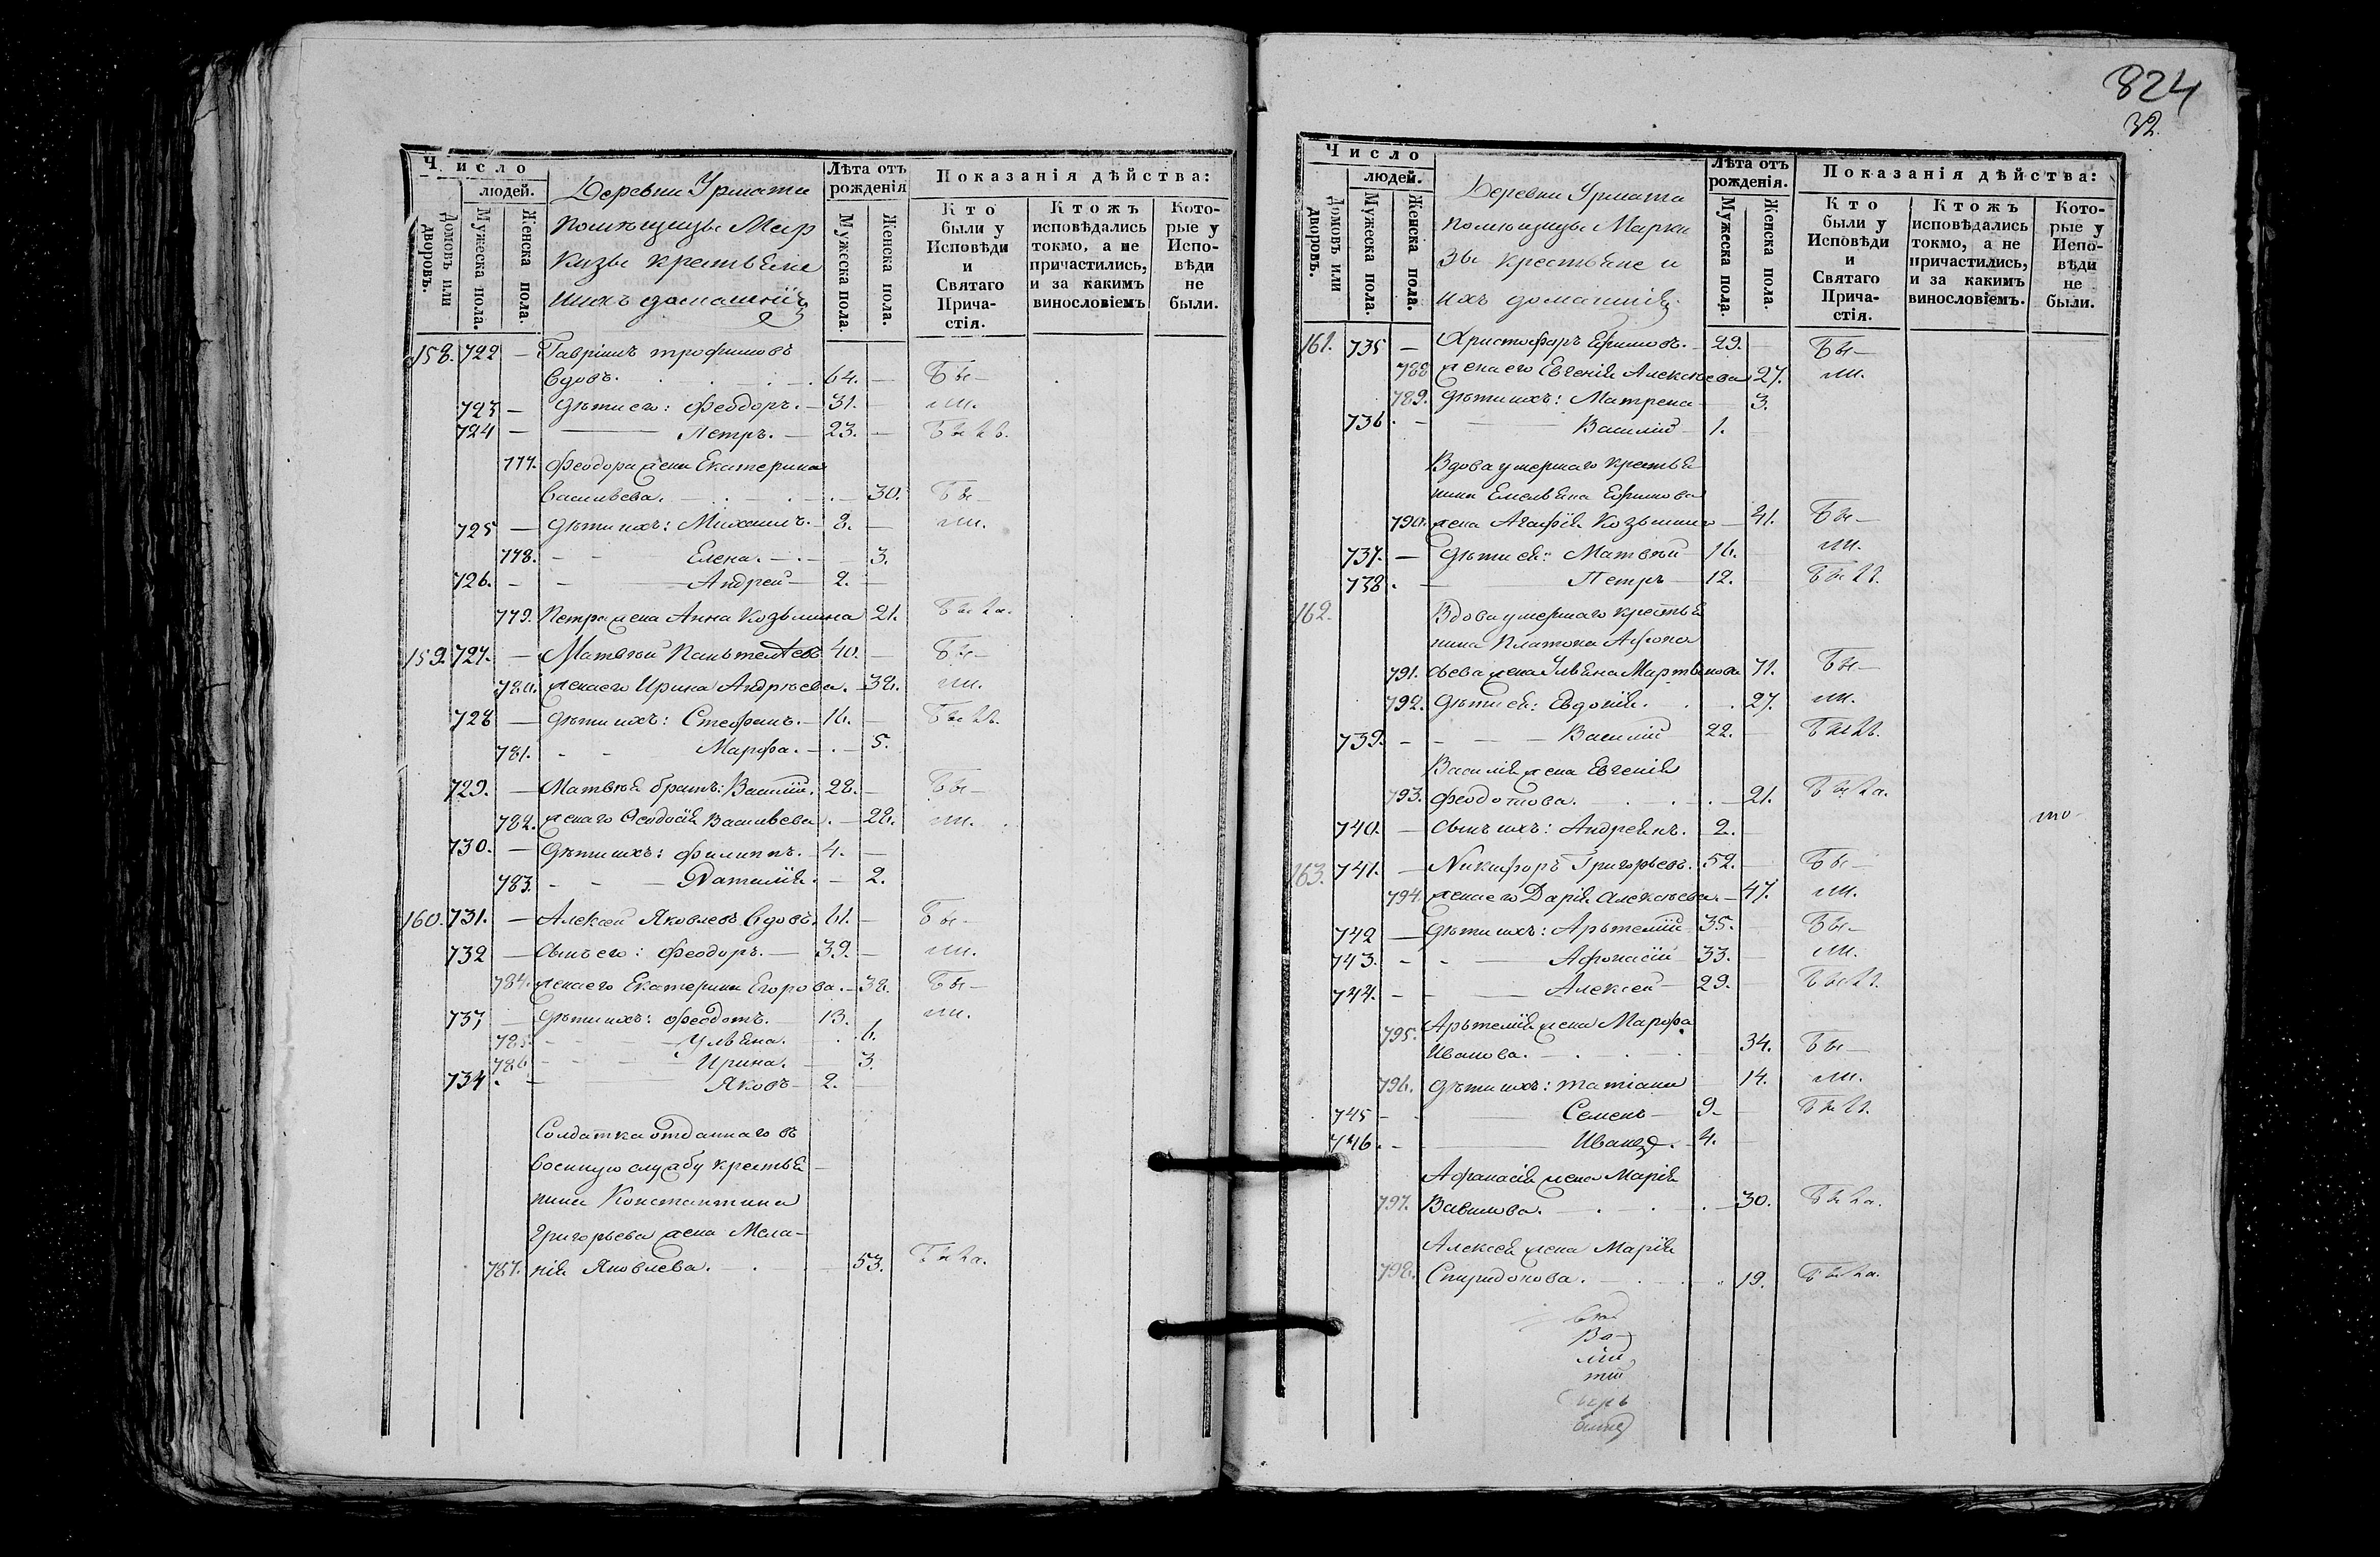 Число
людей.
Домовъ или дворовъ.
Мужеска пола.
Женска пола.
Деревни Урмати
помѣщицы Мар
кизы крестьяне
и ихъ домашнія
Лѣта отъ рожденія
Мужеска пола.
Женска пола.
Показанія дѣйства:
Кто были у Исповѣди и Святаго Прича-стія.
Ктожъ исповѣдались токмо, а не причастились, и за какимъ винословіемъ
Кото-рые у Испо-вѣди не были.
158. 722 — Гавріилъ трофимовъ
вдовъ. 64. — Бы-
723 — дѣти его: Феодоръ. — 31. — ли.
724 — Петръ. — 23. — Былъ.
777. Феодора жена Екатерина
Васильева. 30. Бы-
725 — дѣти ихъ: Михаилъ. 8. — ли.
778. Елена. 3.
726. Андрей 2. —
779. Петра жена Анна Козьмина 21. Была.
159. 727. — Матвѣй Пантелѣевъ 40. — Бы-
780. жена его Ирина Андрѣева. 38. ли.
728 — дѣти ихъ: Стефанъ. 16. — Былъ.
781. Марфа. 5.
729. — Матвѣя братъ: Василій. 28. — Бы-
782. жена его Феодосія Васильева. 28. ли.
730. — дѣти ихъ: Филиппъ. 4. —
783. Наталія. 2.
160. 731. — Алексѣй Яковлевъ вдовъ. 61. — Бы-
732 — сынъ его: Феодоръ. — 39. — ли.
784. жена его Екатерина Егорова. 38. Бы-
733 — дѣти ихъ: Феодотъ. 13. ли.
785. Ульяна. 6.
786 Ирина. 3.
734. Яковъ 2. —
Солдатка отданнаго въ
военную службу крестья-
нина Константина
Григорьева жена Мела-
787. нія Яковлева. 53. Была.
824
32.
Число
людей.
Домовъ или дворовъ.
Мужеска пола.
Женска пола.
Деревни Урмати
помѣщицы Марки
зы крестьяне и
ихъ домашнія.
Лѣта отъ рожденія.
Мужеска пола.
Женска пола.
Показанія дѣйства:
Кто были у Исповѣди и Святаго Прича-стія.
Ктожъ исповѣдались токмо, а не причастились, и за какимъ винословіемъ.
Кото-рые у Испо-вѣди не были.
161. 735 — Христофоръ Ефимовъ. 29. Бы-
788 жена его Евгенія Алексѣева 27. ли.
789. дѣти ихъ: Матрена 3.
736. Василій 1.
Вдова умершаго крестья
нина Емельяна Ефимова
790. жена Агафія Козьмина 41. Бы-
737. — дѣти ея: Матвѣй 16. ли.
738. Петръ 12. Былъ.
162. Вдова умершаго крестья
нина Платона Афона
791. сьева жена Ульяна Мартынова 71. Бы-
792. дѣти ея: Евдокія. 27. ли.
739. Василій 22. Былъ.
Василія жена Евгенія
793. Феодотова. 21. Была.
740. — сынъ ихъ: Андреянъ. 2.
163. 741. — Никифоръ Григорьевъ. 52. Бы-
794. жена его Дарія Алексѣева. 47. ли.
742 — дѣти ихъ: Артемій 35. Бы-
743. Афонасій 33. ли.
744. Алексѣй 29. Былъ.
Артемія жена Марфа
795. Иванова. 34. Бы-
796. дѣти ихъ: татіана 14. ли.
745 Семенъ 9. Былъ.
746. Иванъ. 4.
Афанасія жена Марія
797. Вавилова. 30. Была.
Алексѣя жена Марія
798. Спиридонова. 19. Была.
Ва-
лій